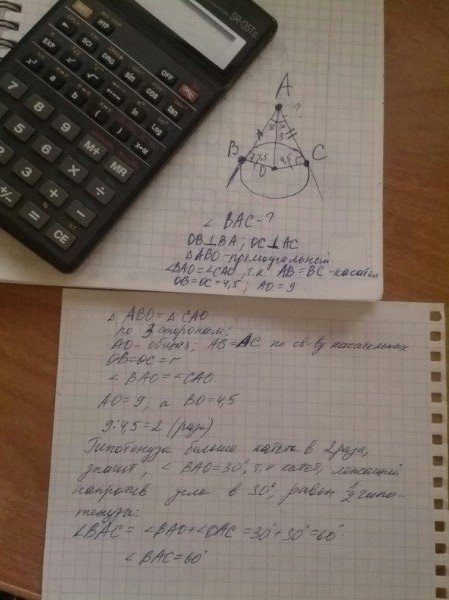 SR-135T
HYP
OFF
EXP
SCI
DRG
sin
cos
tan
x²
√
ln
Log
a
b
(
)
x→M
7
8
9
M+
MR
4
5
6
1
2
3
+/-
0
.
=
CE
A
?
B
C
4,5
4,5
O
∠ BAC-?
OB⊥BA; OC⊥AC
△ABO-прямоугольный
∠BAO=∠CAO, т.к. AB=BC-касател
OB=OC=4,5; AO=9
△ ABO=△ CAO
по 3 сторонам:
AO- общая; AB=AC по св-ву касательных
OB=OC=r
∠ BAO=∠CAO.
AO=9, а BO=4,5
9:4,5=2 (раза)
Гипотенуза больше катета в 2 раза,
значит, ∠ BAO=30°, т.к катет, лежащий
напротив угла в 30°, равен 1/2 гипо-
тенузы.
∠BAC = ∠BAO+∠OAC =30°+30°=60°
∠ BAC=60°